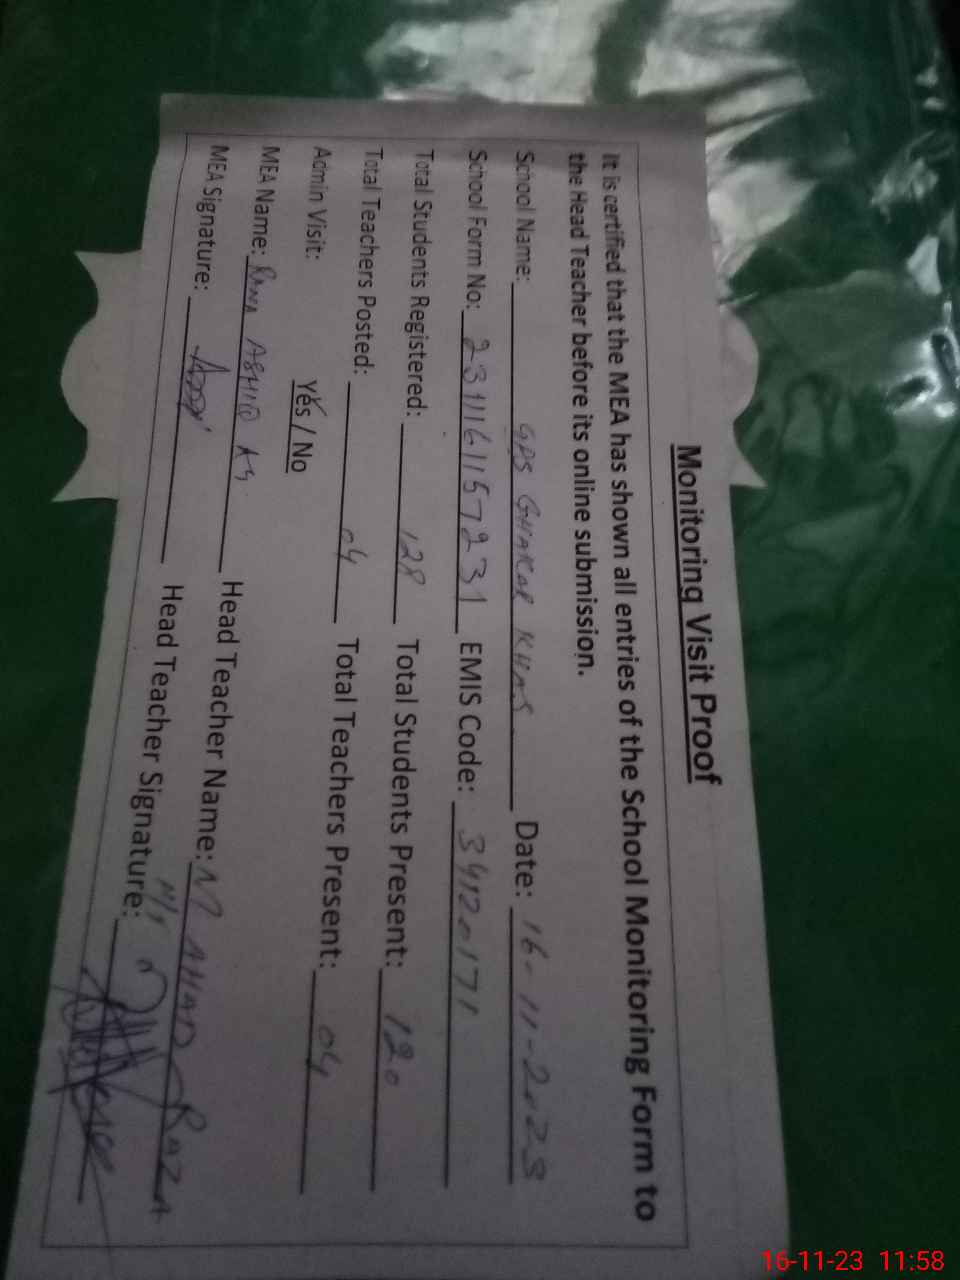 Monitoring Visit Proof
It is certified that the MEA has shown all entries of the School Monitoring Form to
the Head Teacher before its online submission.
School Name: GPS GHAKAR KHAS Date: 16-11-2023
School Form No: 2311161157231 EMIS Code: 34120171
Total Students Registered: 128 Total Students Present: 120
Total Teachers Posted: 04 Total Teachers Present: 04
Admin Visit: Yes / No
MEA Name: RANA ASHIQ Head Teacher Name: M AHAD RAZA
MEA Signature: Head Teacher Signature:
16-11-23 11:58